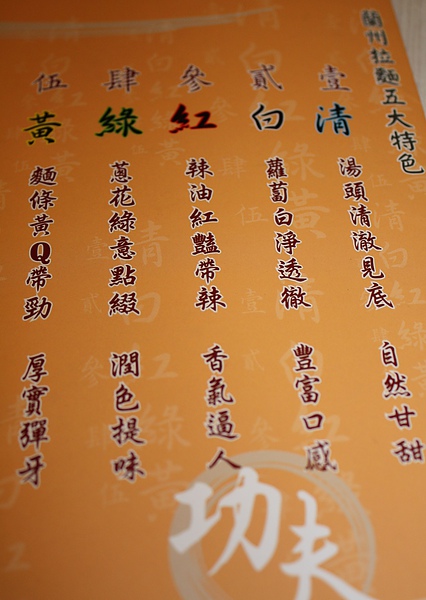 蘭州拉麵五大特色
壹
清
湯頭清澈見底
自然甘甜
貳
白
蘿蔔白淨透徹
豐富口感
參
紅
辣油紅豔帶辣
香氣逼人
肆
綠
蔥花綠意點綴
潤色提味
伍
黃
麵條黃Q帶勁
厚實彈牙
功夫